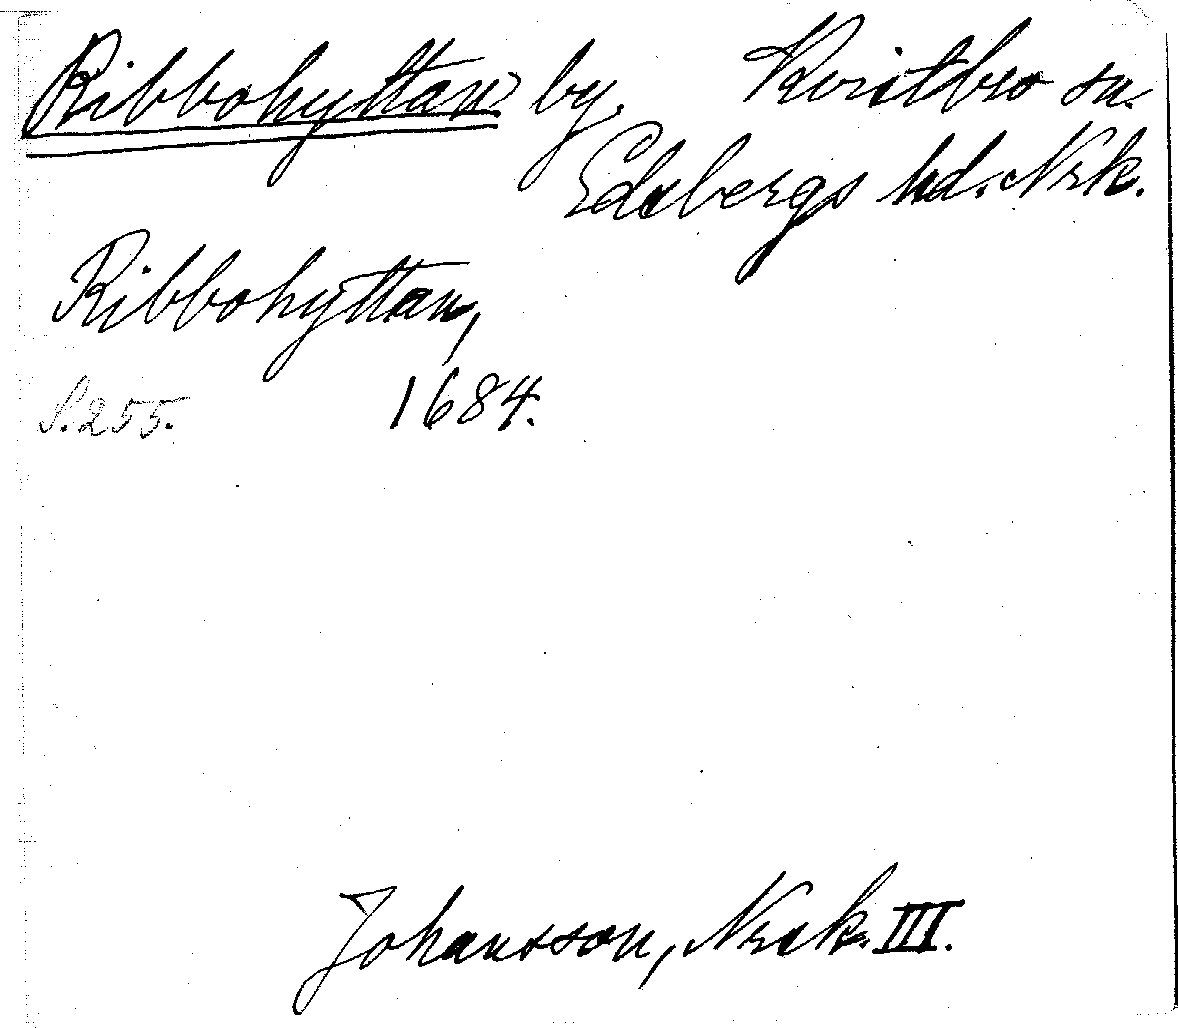 Ribbohyttan by. Kvistbro sn.
Edsbergs hd. Nrk.
Ribbohyttan,
S. 255. 1684.
Johansson, Nrek. III.